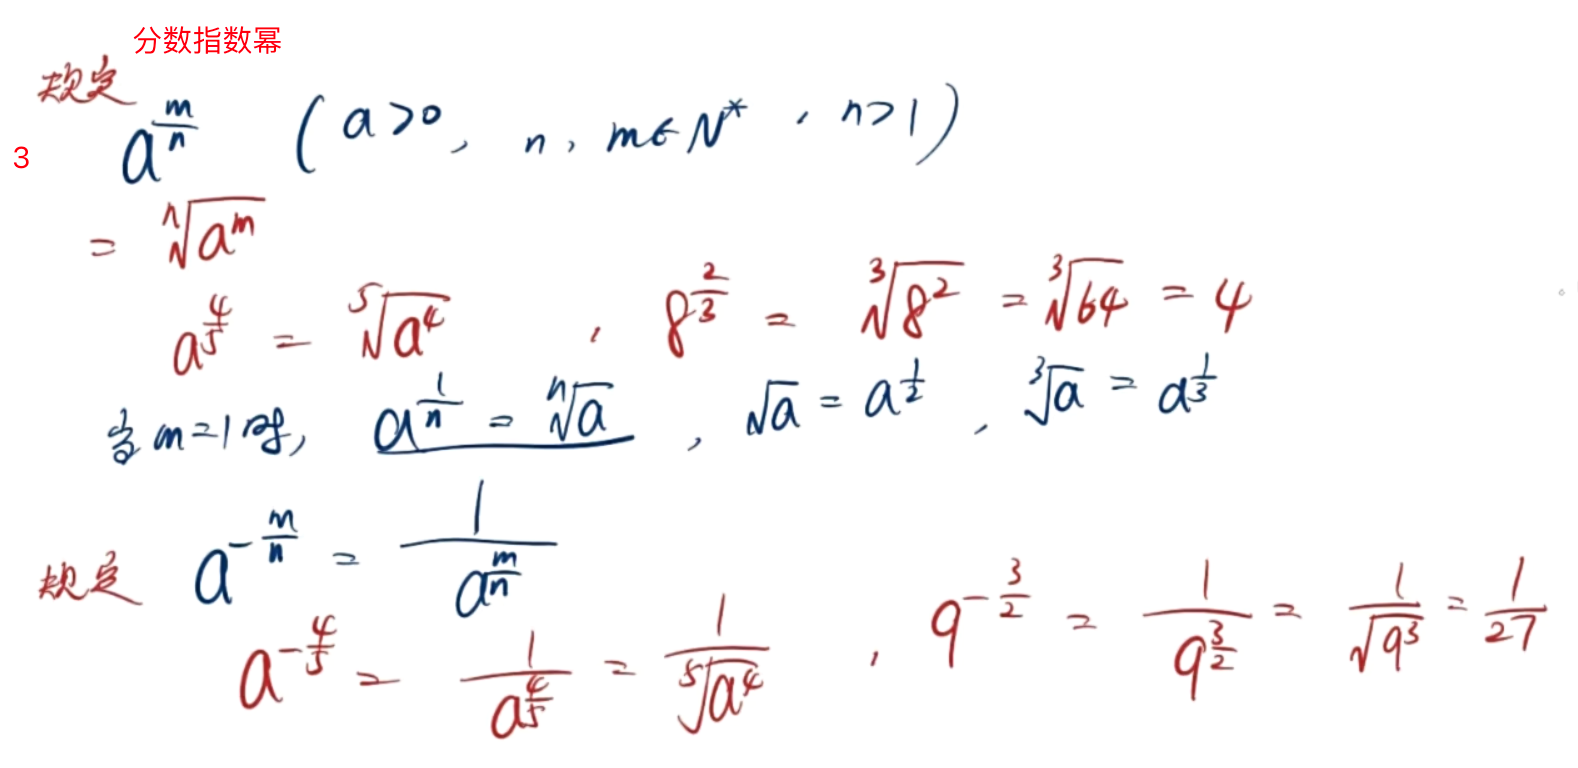 分数指数幂
规定
3 a^{\frac{m}{n}} ( a>0, n, m∈N* , n>1 )
= \sqrt[n]{a^m}
a^{\frac{4}{5}} = \sqrt[5]{a^4} , 8^{\frac{2}{3}} = \sqrt[3]{8^2} = \sqrt[3]{64} = 4
当 m=1 时, a^{\frac{1}{n}} = \sqrt[n]{a} , \sqrt{a} = a^{\frac{1}{2}} , \sqrt[3]{a} = a^{\frac{1}{3}}
规定 a^{-\frac{m}{n}} = \frac{1}{a^{\frac{m}{n}}}
a^{-\frac{4}{5}} = \frac{1}{a^{\frac{4}{5}}} = \frac{1}{\sqrt[5]{a^4}} , 9^{-\frac{3}{2}} = \frac{1}{9^{\frac{3}{2}}} = \frac{1}{\sqrt{9^3}} = \frac{1}{27}